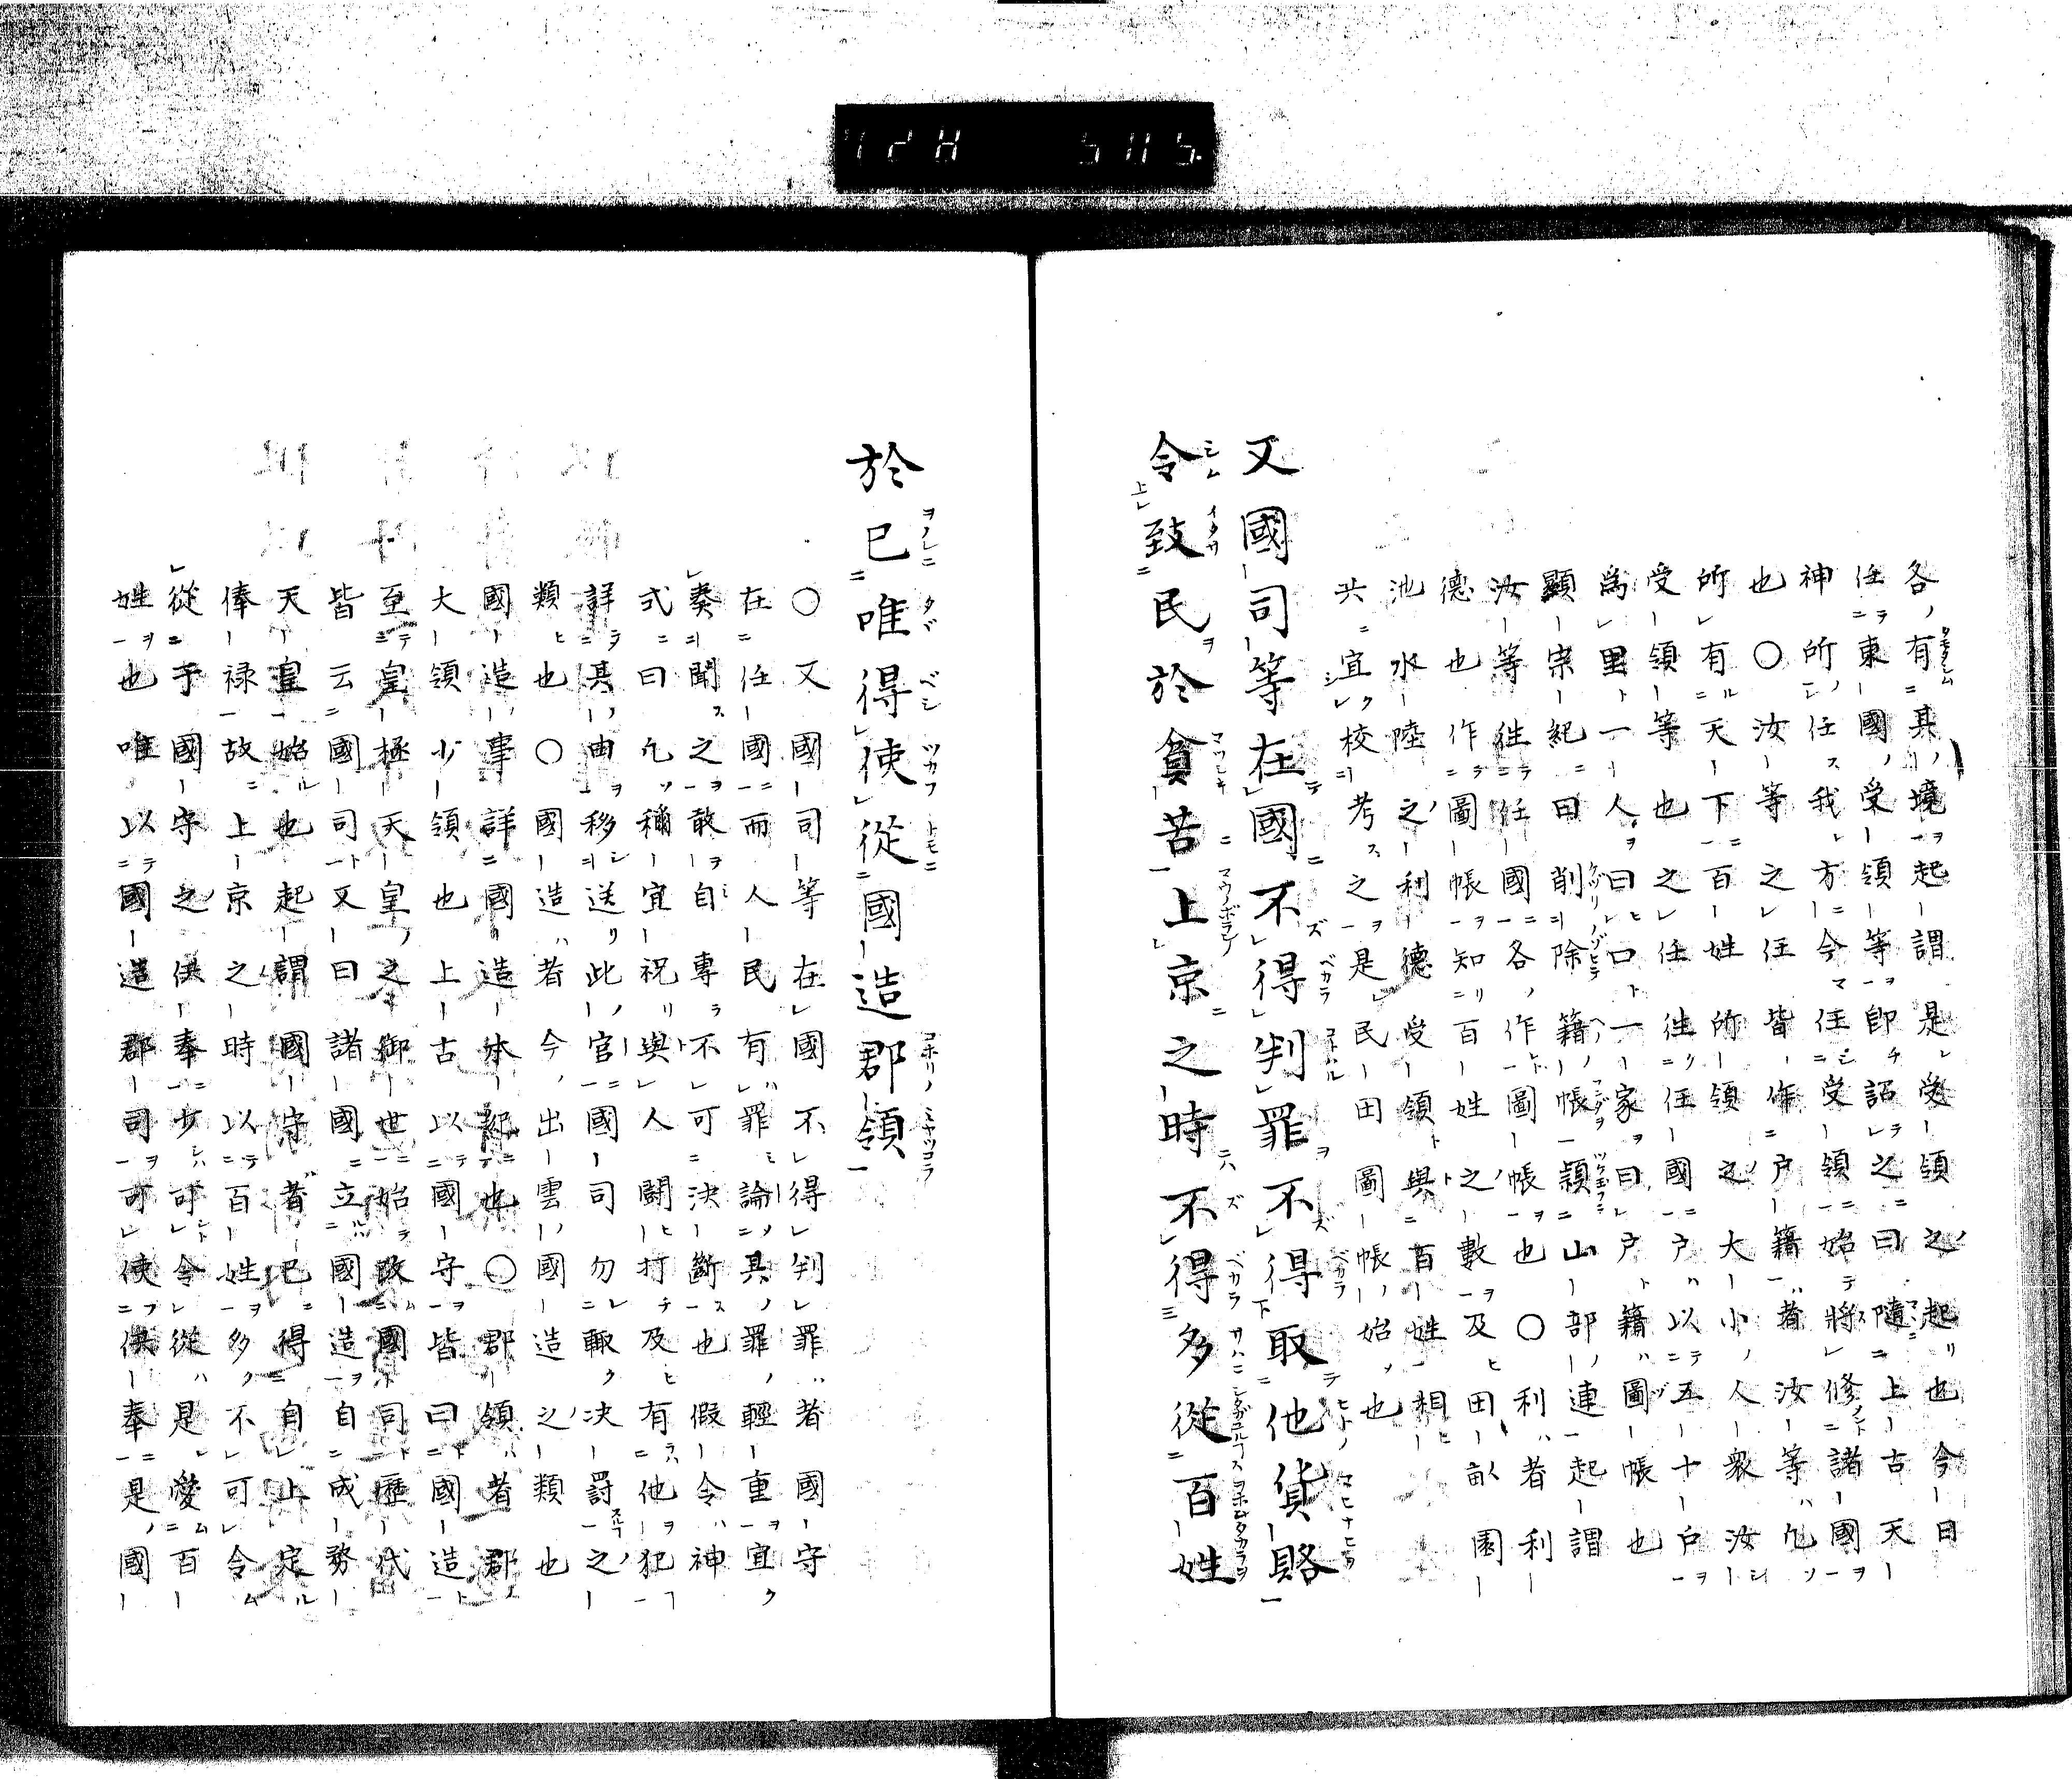 各有其境起謂是受領之起也今日
任東國受領等即詔之曰隨上古天
神所任我方今任受領始將修諸國
也〇汝等之任皆作戸籍者汝等凡
所有天下百姓所領之大小人衆汝
受領等也之任往任國戸以五十戸
爲里一人曰口一家曰戸籍圖帳也
顯宗紀曰削除籍帳頴山部連起謂
汝等往任國各作圖帳也〇利者利
德也作圖帳知百姓之數及田畝園
池水陸之利德受領與百姓相
共宜校考之是民田圖帳始也
又國司等在國不得判罪不得取他貨賂
令致民於貧苦上京之時不得多從百姓
於已唯得使從國造郡領
〇又國司等在國不得判罪者國守
在任國而人民有罪論其罪輕重宜
奏聞之敢自專不可決斷也假令神
式曰凡稱宜祝與人鬪打及有他犯
詳其由移送此官國司勿輙決罰之
類也〇國造者今出雲國造之類也
國造事詳國造本紀也〇郡領者郡
大領少領也上古以國守皆曰國造
至皇極天皇之御世始改國司歷代
皆云國司又曰諸國立國造自成務
天皇始也起謂國守者已得自上定
俸禄故上京之時以百姓多不可令
從于國守之供奉少可令從是愛百
姓也唯以國造郡司可使供奉是國